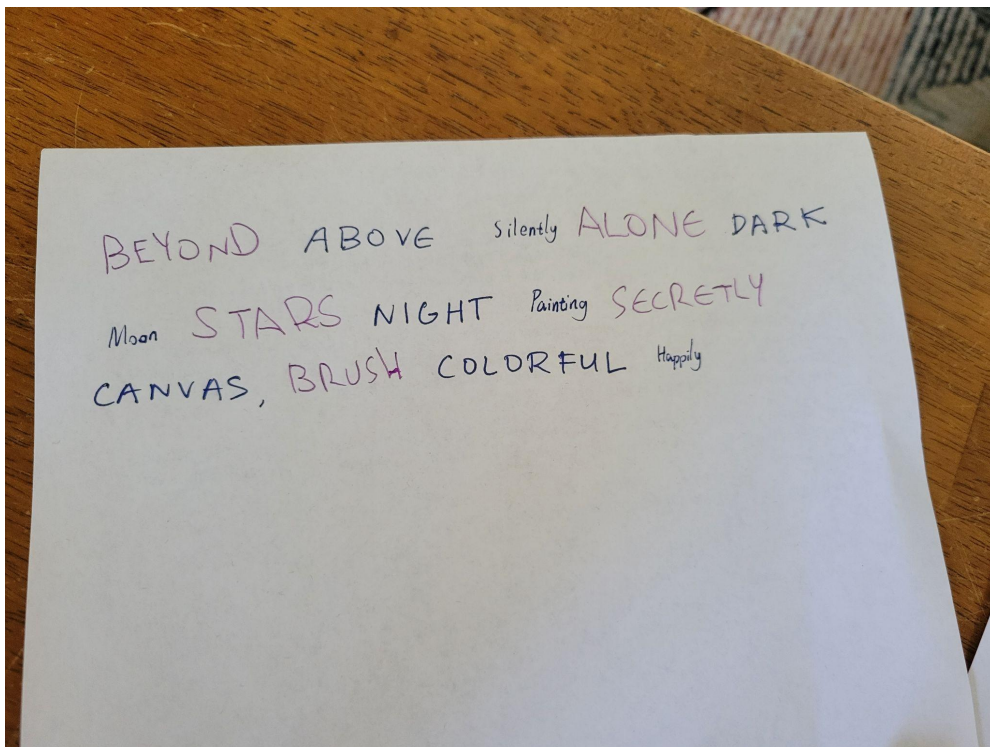 BEYOND ABOVE Silently ALONE DARK
Moon STARS NIGHT Painting SECRETLY
CANVAS, BRUSH COLORFUL Happily